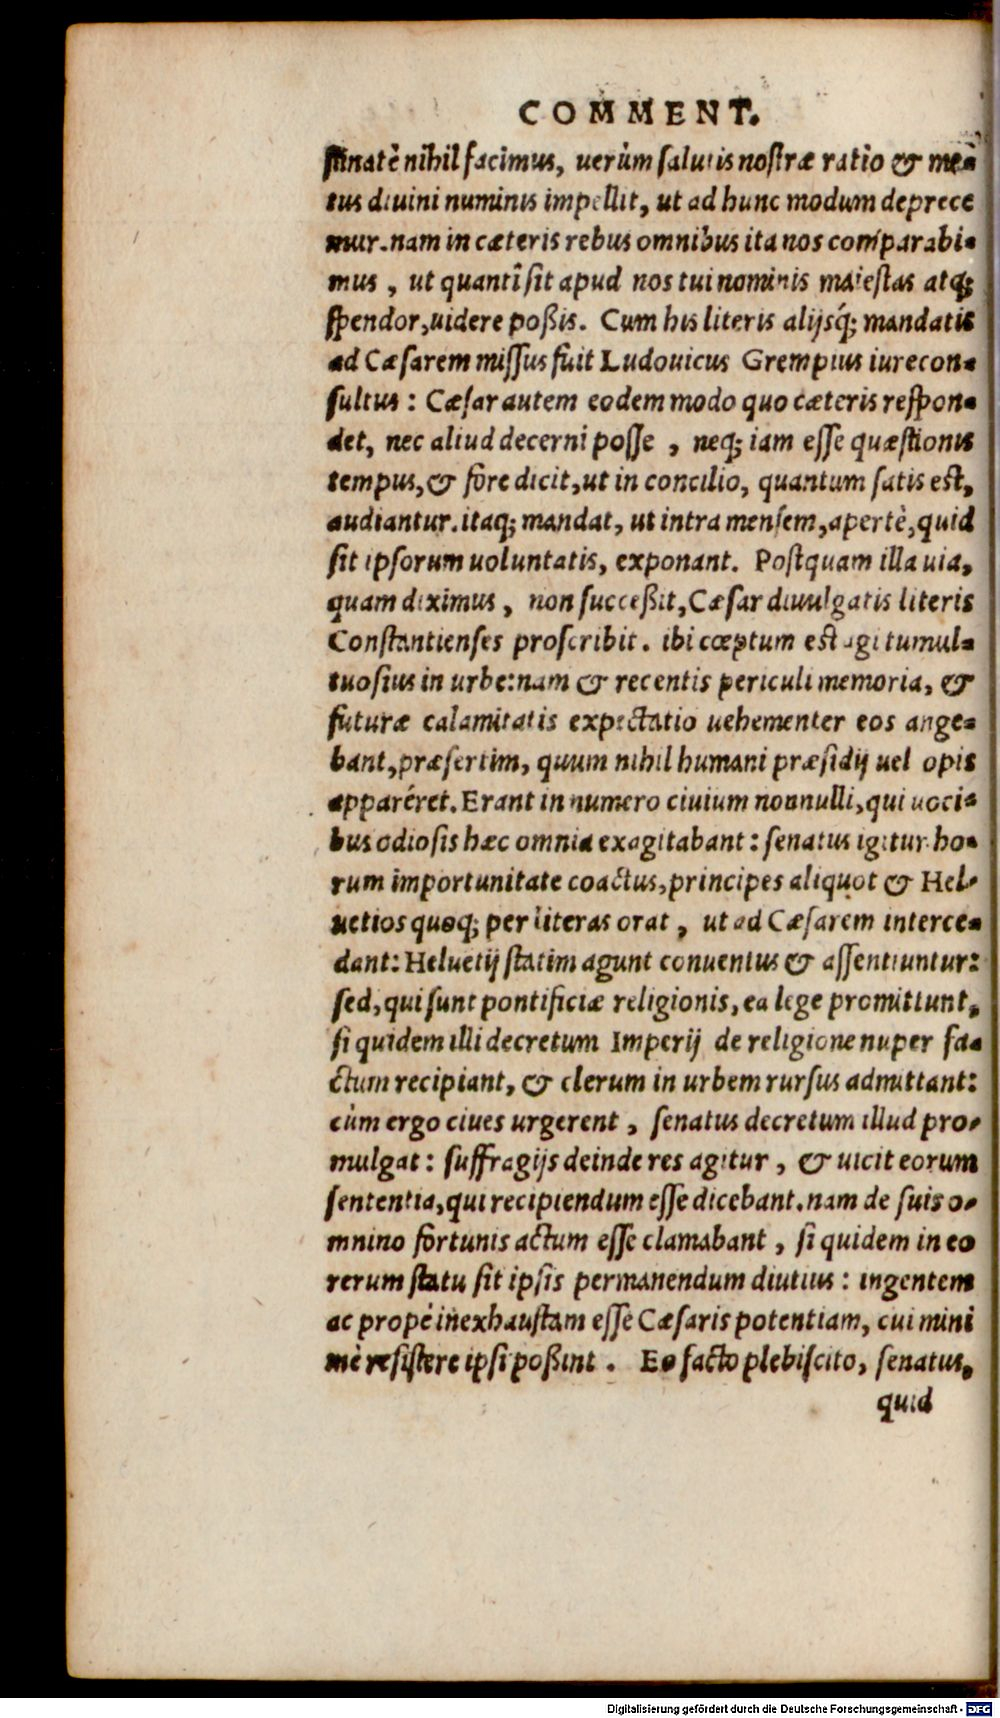 COMMENT.
stinatè nihil facimus, uerùm salutis nostræ ratio & me-
tus diuini numinis impellit, ut ad hunc modum deprece
mur. nam in cæteris rebus omnibus ita nos comparabi-
mus, ut quanti sit apud nos tui nominis maiestas atq;
splendor, uidere poßis. Cum his literis alijsq́; mandatis
ad Cæsarem missus fuit Ludouicus Grempius iurecon-
sultus: Cæsar autem eodem modo quo cæteris respon-
det, nec aliud decerni posse, neq; iam esse quæstionis
tempus, & fore dicit, ut in concilio, quantum satis est,
audiantur. itaq; mandat, ut intra mensem, apertè, quid
sit ipsorum uoluntatis, exponant. Postquam illa uia,
quam diximus, non succeßit, Cæsar diuulgatis literis
Constantienses proscribit. ibi cœptum est agi tumul-
tuosius in urbe: nam & recentis periculi memoria, &
futuræ calamitatis expectatio uehementer eos ange-
bant, præsertim, quum nihil humani præsidij uel opis
appareret. Erant in numero ciuium nonnulli, qui uoci-
bus odiosis hæc omnia exagitabant: senatus igitur ho-
rum importunitate coactus, principes aliquot & Hel-
uetios quoq; per literas orat, ut ad Cæsarem interce-
dant: Heluetij statim agunt conuentus & assentiuntur:
sed, qui sunt pontificiæ religionis, ea lege promittunt,
si quidem illi decretum Imperij de religione nuper fa-
ctum recipiant, & clerum in urbem rursus admittant:
cùm ergo ciues urgerent, senatus decretum illud pro-
mulgat: suffragijs deinde res agitur, & uicit eorum
sententia, qui recipiendum esse dicebant. nam de suis o-
mnino fortunis actum esse clamabant, si quidem in eo
rerum statu sit ipsis permanendum diutius: ingentem
ac propè inexhaustam esse Cæsaris potentiam, cui mini
mè resistere ipsi poßint. Eo facto plebiscito, senatus,
quid
Digitalisierung gefördert durch die Deutsche Forschungsgemeinschaft - DFG